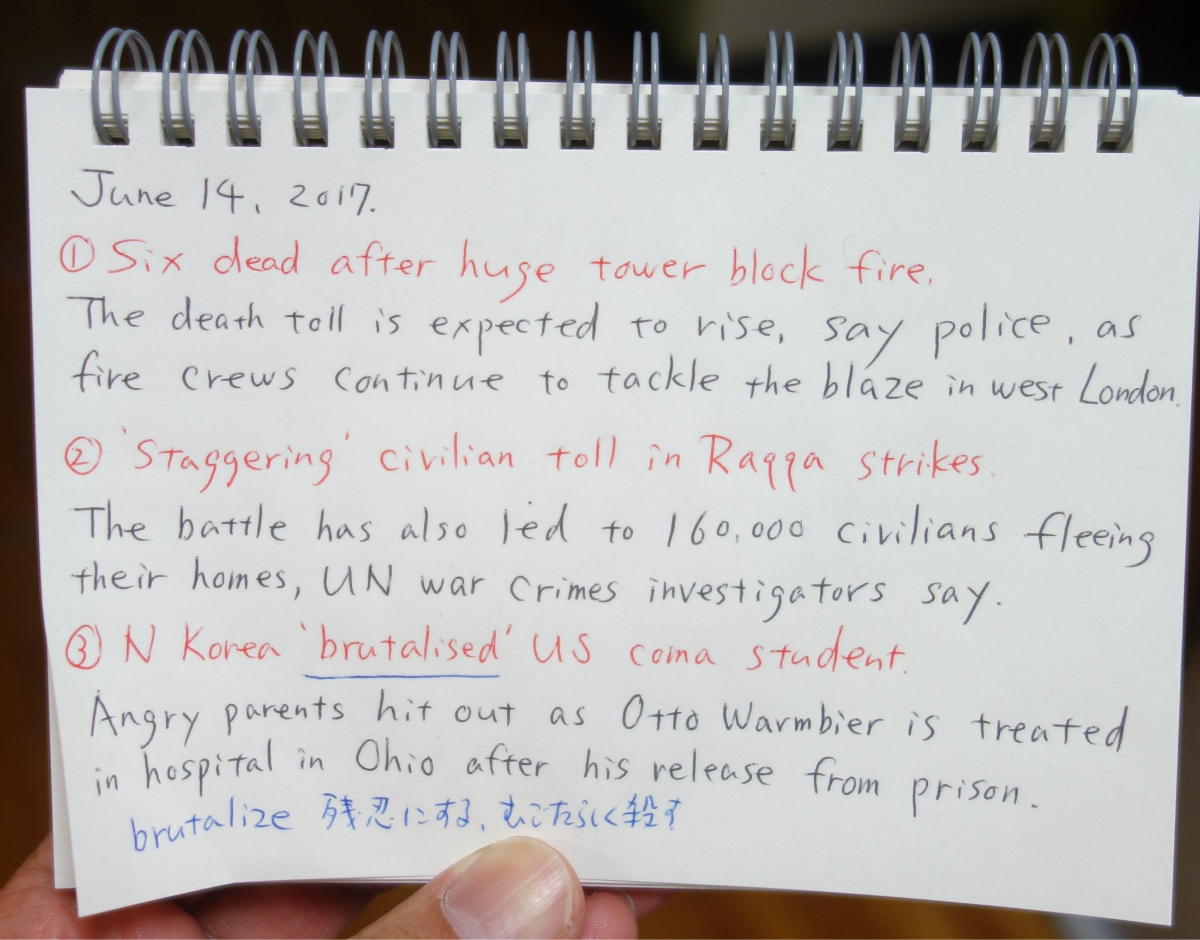 June 14, 2017.
① Six dead after huge tower block fire.
The death toll is expected to rise, say police, as
fire crews continue to tackle the blaze in west London.
② 'Staggering' civilian toll in Raqqa strikes.
The battle has also led to 160,000 civilians fleeing
their homes, UN war crimes investigators say.
③ N Korea 'brutalised' US coma student.
Angry parents hit out as Otto Warmbier is treated
in hospital in Ohio after his release from prison.
brutalize 残忍にする、むごたらしく殺す